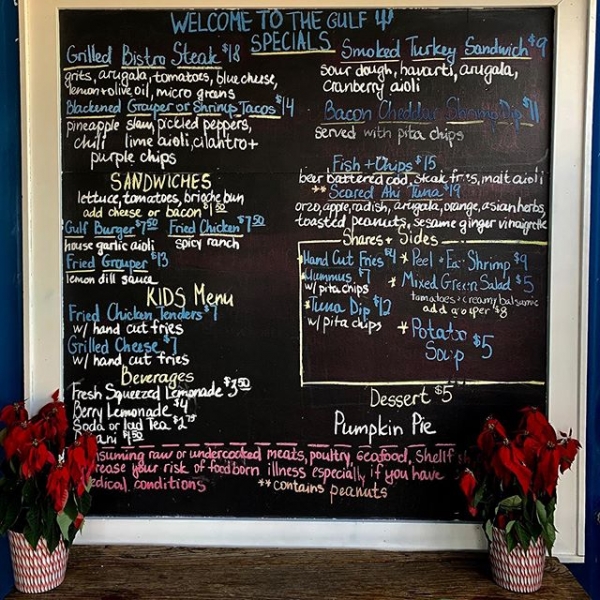 WELCOME TO THE GULF
SPECIALS
Grilled Bistro Steak $18
grits, arugala, tomatoes, blue cheese,
lemon + olive oil, micro greens
Blackened Grouper or Shrimp Tacos $14
pineapple slaw, pickled peppers,
chili lime aioli, cilantro +
purple chips
SANDWICHES
lettuce, tomatoes, brioche bun
add cheese or bacon
Gulf Burger $7.50 Fried Chicken $7.50
house garlic aioli spicy ranch
Fried Grouper $13
lemon dill sauce
KIDS Menu
Fried Chicken Tenders $7
w/ hand cut fries
Grilled Cheese $7
w/ hand cut fries
Beverages
Fresh Squeezed Lemonade $3.50
Berry Lemonade $4
Soda or Iced Tea
Smoked Turkey Sandwich $9
sour dough, havarti, arugala,
cranberry aioli
Bacon Cheddar Shrimp Dip $11
served with pita chips
Fish + Chips $15
beer battered cod, steak fries, malt aioli
** Seared Ahi Tuna $19
orzo, apple, radish, arugala, orange, asian herbs,
toasted peanuts, sesame ginger vinaigrette
Shares + Sides
Hand Cut Fries $4
* Hummus $7
w/ pita chips
* Tuna Dip $12
w/ pita chips
* Peel + Eat Shrimp $9
* Mixed Green Salad $5
tomatoes + creamy balsamic
add grouper $8
* Potato
Soup $5
Dessert $5
Pumpkin Pie
raw or undercooked meats, poultry, seafood,
your risk of foodborn illness especially if you have
conditions
** contains peanuts